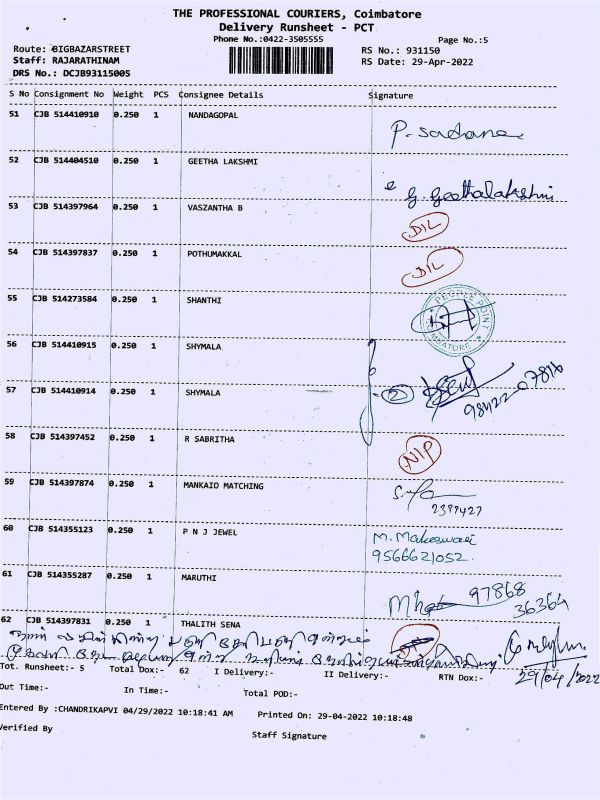 THE PROFESSIONAL COURIERS, Coimbatore
Delivery Runsheet - PCT
Phone No.:0422-3505555
Page No.:5
Route: BIGBAZARSTREET
RS No.: 931150
Staff: RAJARATHINAM
RS Date: 29-Apr-2022
DRS No.: DCJB93115005
S No Consignment No Weight PCS Consignee Details Signature
51 CJB 514410910 0.250 1 NANDAGOPAL
P. Sadhana
52 CJB 514404510 0.250 1 GEETHA LAKSHMI
G. Geethalakshmi
53 CJB 514397964 0.250 1 VASZANTHA B
DIL
54 CJB 514397837 0.250 1 POTHUMAKKAL
DIL
55 CJB 514273584 0.250 1 SHANTHI
PEOPLE POINT
56 CJB 514410915 0.250 1 SHYMALA
57 CJB 514410914 0.250 1 SHYMALA
2
98422 07816
58 CJB 514397452 0.250 1 R SABRITHA
NIP
59 CJB 514397874 0.250 1 MANKAIO MATCHING
2397427
60 CJB 514355123 0.250 1 P N J JEWEL
M. Maheswari
9566621052.
61 CJB 514355287 0.250 1 MARUTHI
97868
36364
62 CJB 514397831 0.250 1 THALITH SENA
நான்
29/04/2022
Tot. Runsheet:- 5 Total Dox:- 62 I Delivery:- II Delivery:- RTN Dox:-
Out Time:- In Time:- Total POD:-
Entered By :CHANDRIKAPVI 04/29/2022 10:18:41 AM Printed On: 29-04-2022 10:18:48
Verified By
Staff Signature